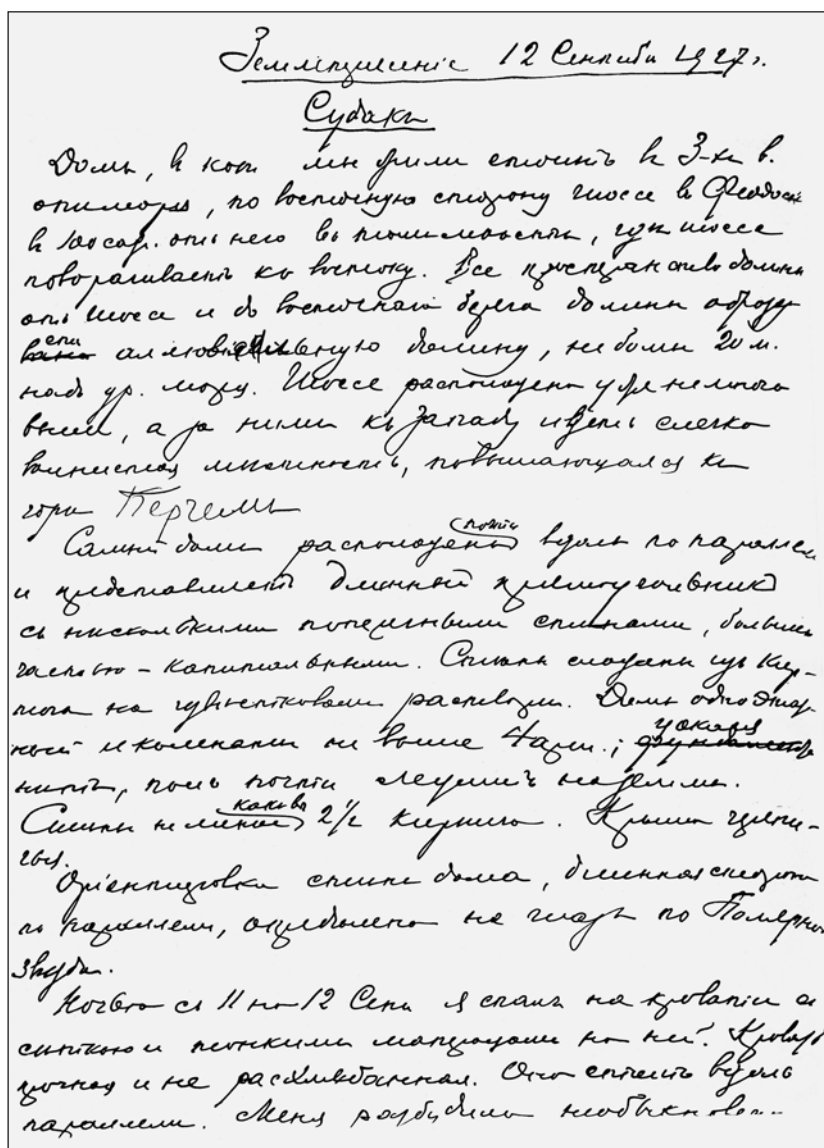 Землетрясеніе 12 Сентября 1927 г.
Судакъ
Домъ, въ кот. мы жили стоитъ въ 3-хъ в.
отъ моря, по восточную сторону шоссе въ Феодосію
въ 100 саж. отъ него въ томъ мѣстѣ, гдѣ шоссе
поворачиваетъ къ востоку. Все пространство долины
отъ шоссе и до восточнаго берега долины образу
етъ аллювіальную долину, не болѣе 20 м.
надъ ур. моря. Шоссе расположено уже немного
выше, а за нимъ къ западу идетъ слегка
волнистая мѣстность, повышающаяся къ
горѣ Перчемъ
Самый домъ расположенъ почти вдоль по параллели
и представляетъ длинный прямоугольникъ
съ нѣсколькими поперечными стѣнами, большей
частью – капитальными. Стѣны сложены изъ кир-
пича на известковомъ растворѣ. Домъ одноэтаж
ный и комнаты не выше 4 арш.;
нѣтъ, полъ почти лежитъ на землѣ.
Стѣны не 2½ кирпича. Крыша черепи-
чья.
Оріентировка стѣны дома, длинная сторона
по параллели, опредѣлена на глазъ по Полярной
Звѣздѣ.
Ночью съ 11 на 12 Сент я спалъ на кровати съ
сѣткою и тонкими матрацами на ней. Кровать
прочная и не расхлябанная. Она стоитъ вдоль
параллели. Меня разбудило необыкновен-